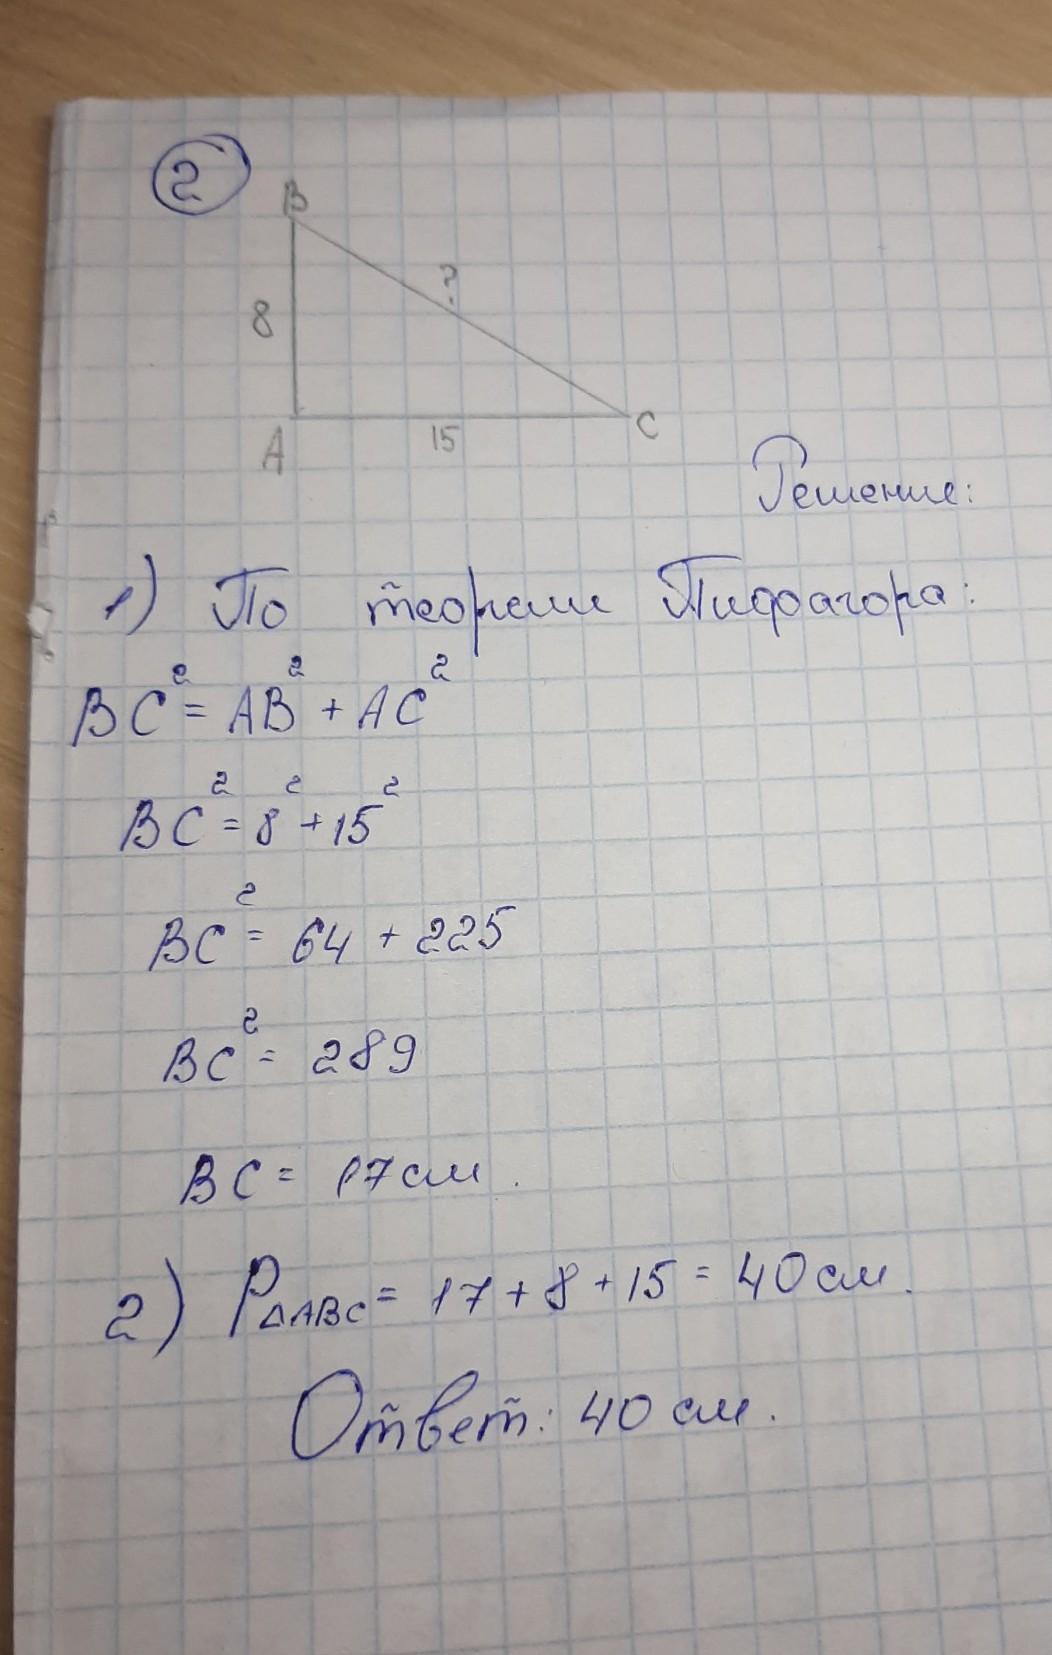 2
B
8
?
A
15
C
Решение:
1) По теореме Пифагора:
BC² = AB² + AC²
BC² = 8² + 15²
BC² = 64 + 225
BC² = 289
BC = 17 см.
2) P△ABC = 17 + 8 + 15 = 40 см.
Ответ: 40 см.